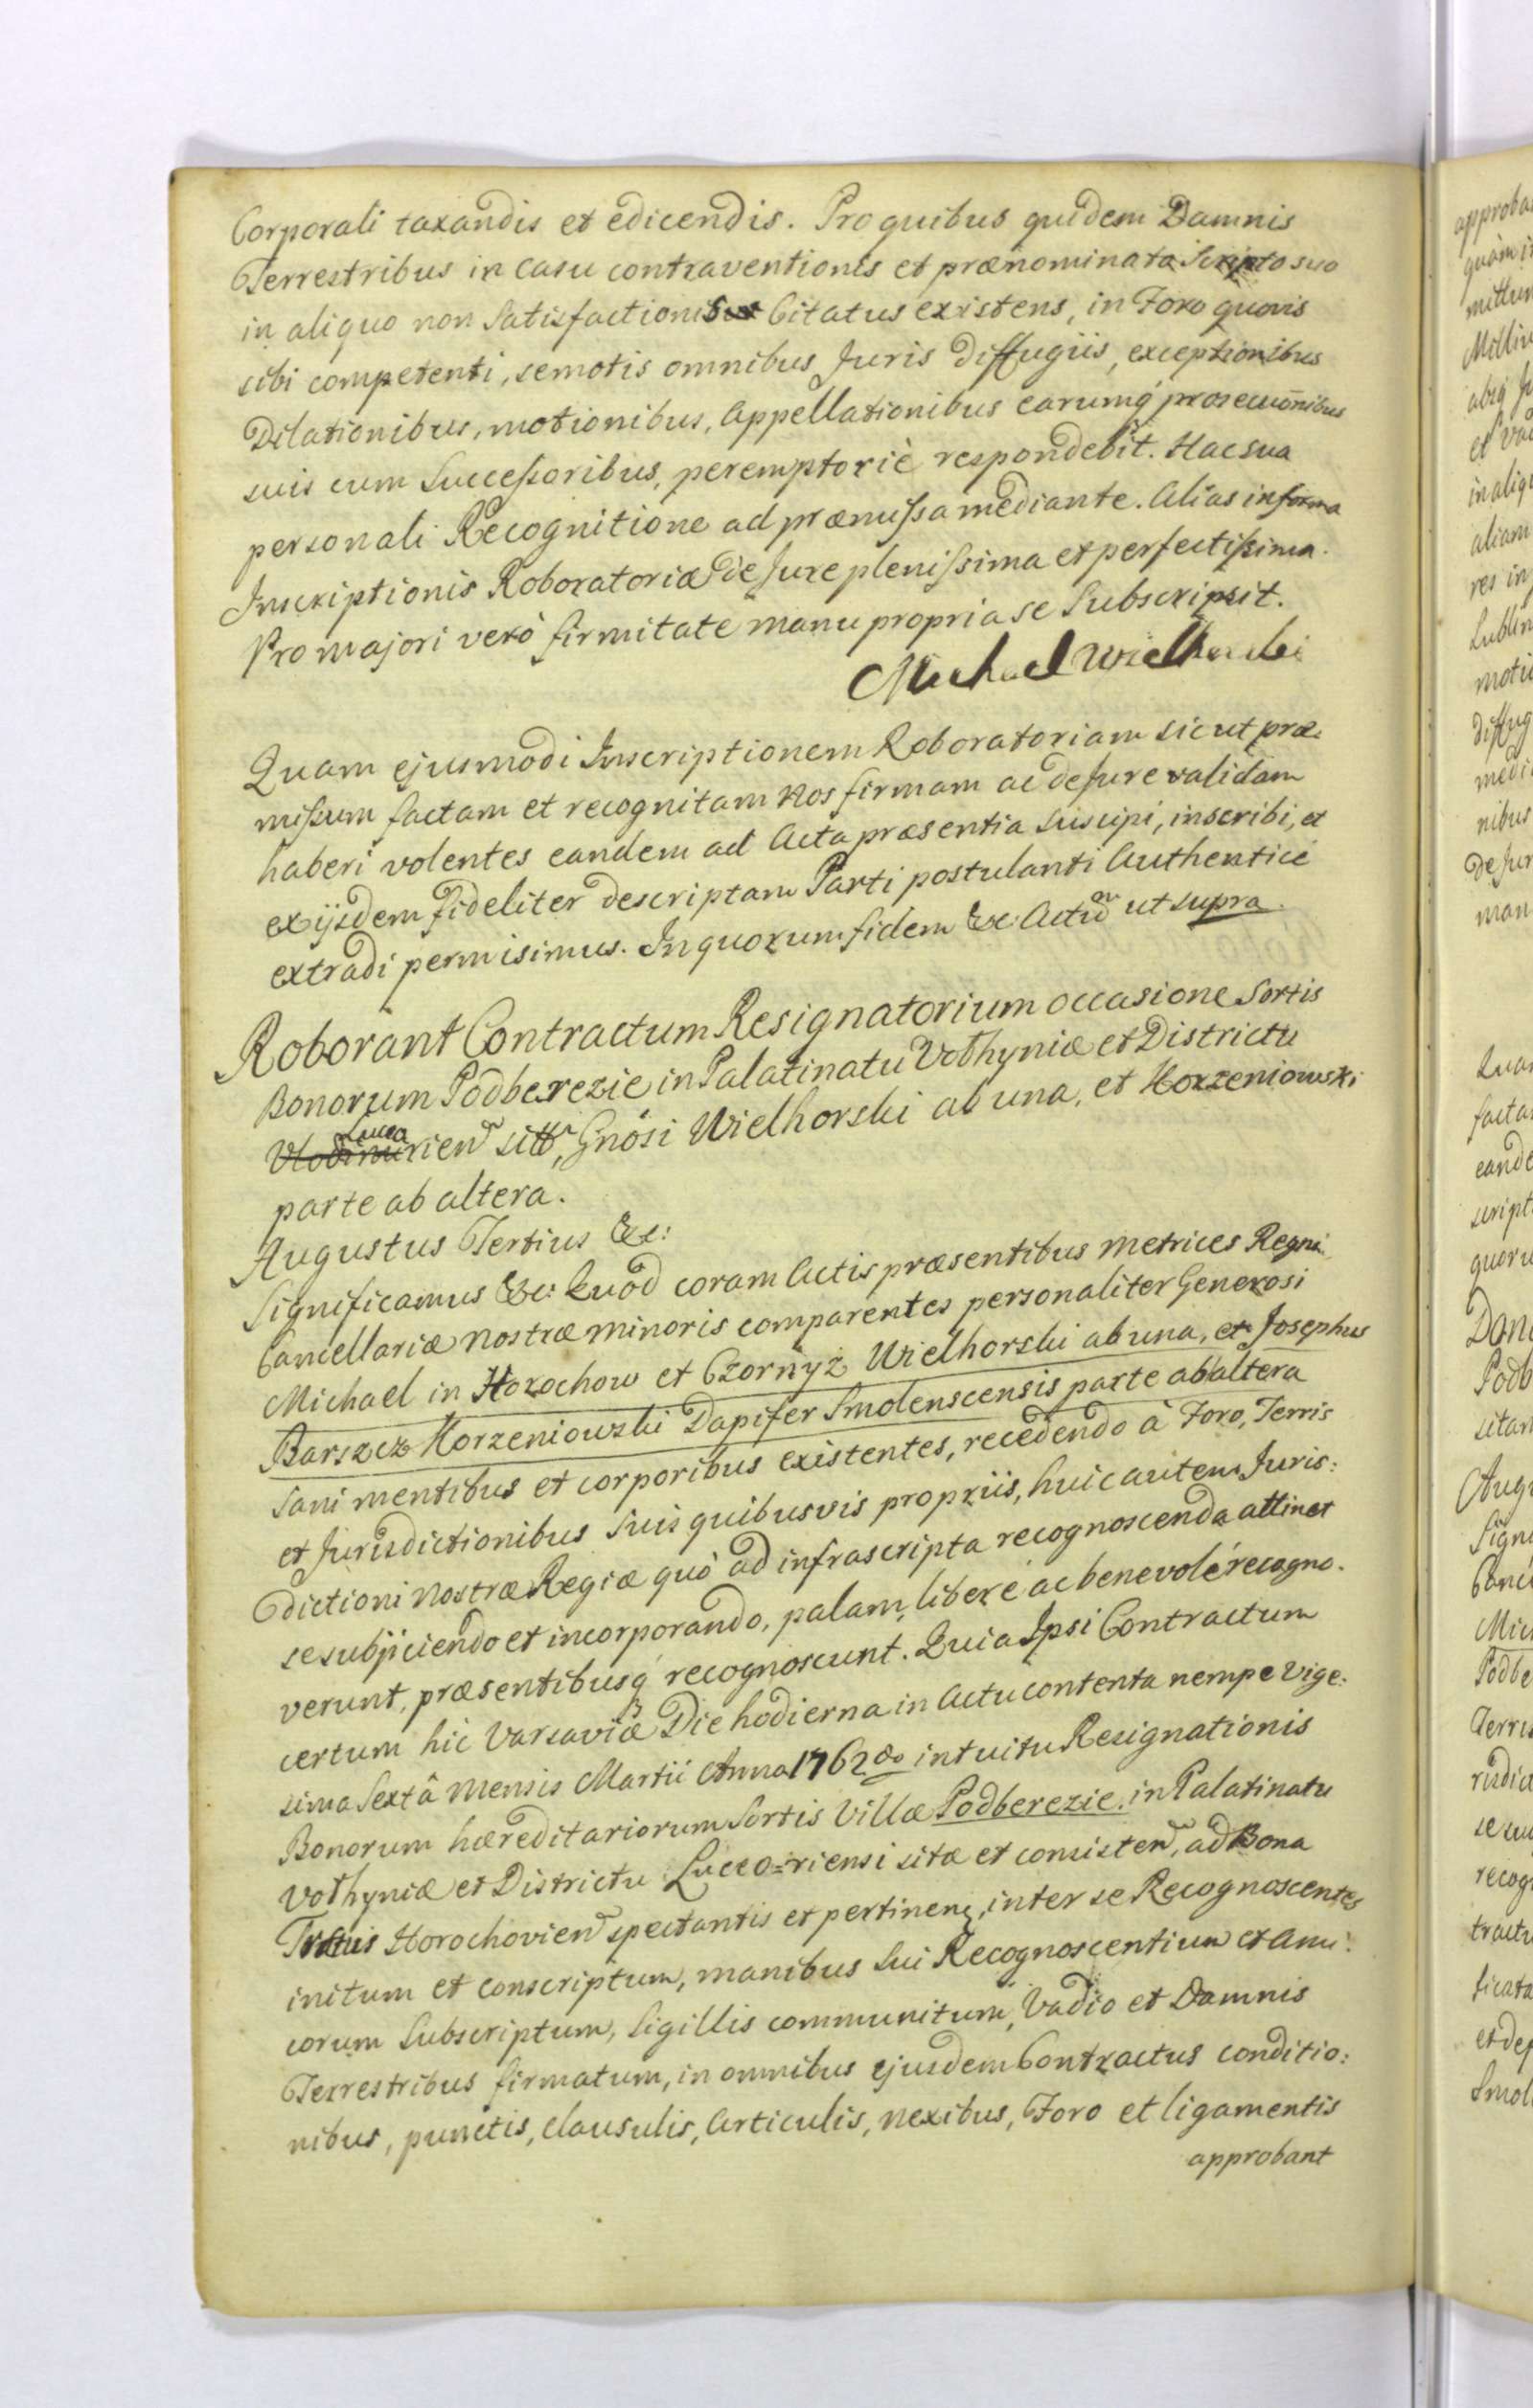 Corporali taxandis et edicendis. Pro quibus quidem Damnis
Terrestribus in casu contraventionis et prænominata Scripto suo
in aliquo non Satisfactionis Citatus existens, in Foro quovis
sibi competenti, semotis omnibus Juris Diffugiis, exceptionibus
Dilationibus, motionibus, Appellationibus earumq́ prosecuōnibus
suis cum Successoribus, peremptoriè respondebit. Hac sua
personali Recognitione ad præmissa mediante. Alias in forma
Inscriptionis Roboratoriæ de Jure plenissima et perfectissima.
Pro majori verò firmitate manu propria se Subscripsit.
Michael Wielhorski
Quam ejusmodi Inscriptionem Roboratoriam sicut præ:
missum factam et recognitam Nos firmam ac de Jure validam
haberi volentes eandem ad Acta præsentia suscipi, inscribi, et
ex ijsdem fideliter descriptam Parti postulanti Authenticè
extradi permisimus. In quorum fidem &c: Actū ut supra.
Roborant Contractum Resignatorium occasione Sortis
Bonorum Podberezie in Palatinatu Volhyniæ et Districtu
Lucco
Vlodimirien sittæ, Gnōsi Wielhorski ab una, et Korzeniowski
parte ab altera.
Augustus Tertius &c:
Significamus &c: Quod coram Actis præsentibus Metrices Regni
Cancellariæ Nostræ Minoris comparentes personaliter Generosi
Michael in Horochow et Czornyż Wielhorski ab una, et Josephus
Barszcz Korzeniowski Dapifer Smolenscensis parte ab altera
sani mentibus et corporibus existentes, recedendo à Foro, Terris
et Jurisdictionibus Suis quibusvis propriis, huic autem Juris:
dictioni Nostræ Regiæ quò ad infrascripta recognoscenda attinet
se subjiciendo et incorporando, palam, liberè ac benevolè recogno.
verunt, præsentibusq́ recognoscunt. Quia Ipsi Contractum
certum hic Varsaviæ Die hodierna in Actu contenta nempe vige:
sima Sextâ Mensis Martii Anno 1762do intuitu Resignationis
Bonorum hæreditariorum Sortis Villæ Podberezie. in Palatinatu
Volhyniæ et Districtu Lucco=riensi sitæ et consisten, ad Bona
Tractus Horochovien spectantis et pertinen, inter se Recognoscentes
initum et conscriptum, manibus Sui Recognoscentium et Ami:
corum Subscriptum, Sigillis communitum, Vadio et Damnis
Terrestribus firmatum, in omnibus ejusdem Contractus conditio:
nibus, punctis, Clausulis, Articulis, nexibus, Foro et ligamentis
approbant